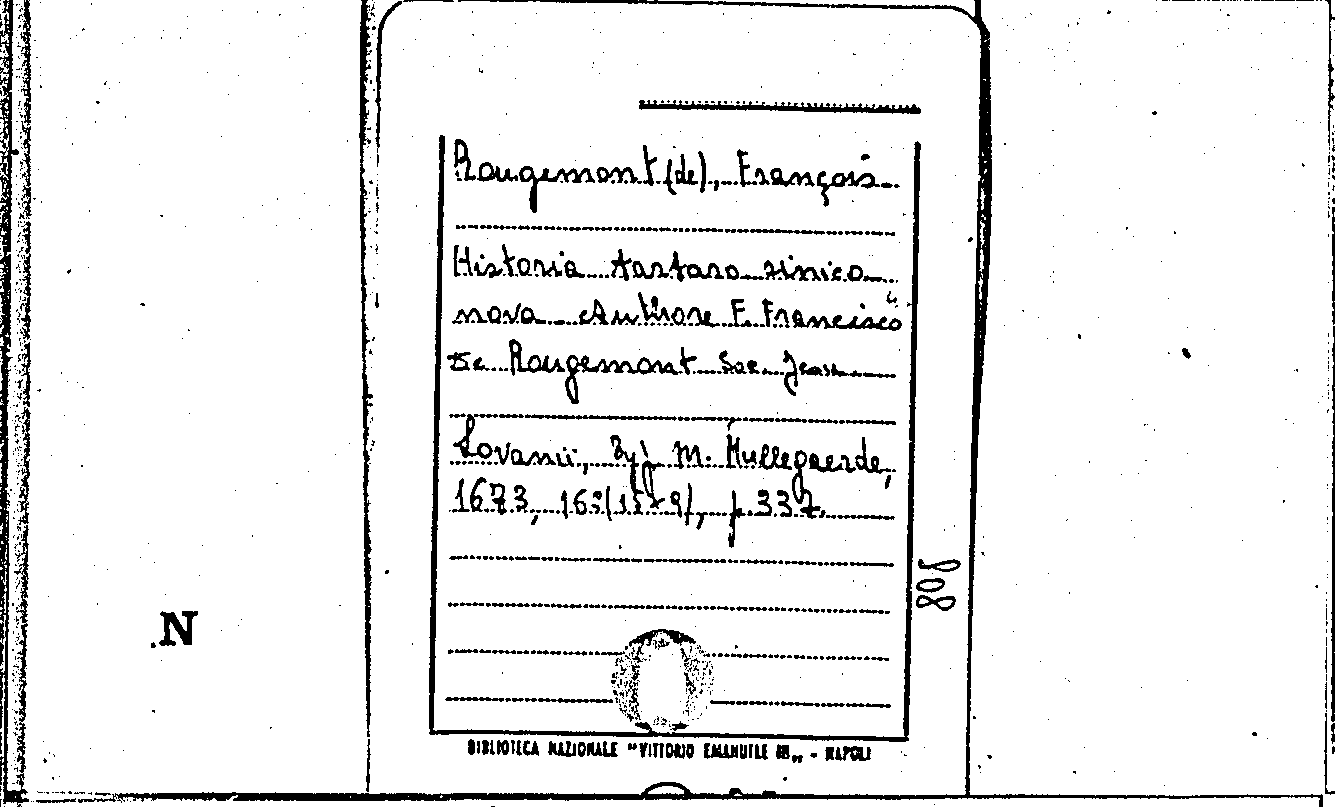 Rougemont (de), François
Historia tartaro sinica
nova Authore F. Francisco
De Rougemont Soc. Jesu
Lovanii, Typ. M. Hullegaerde,
1673, 16°(15x9), p. 337.
808
.N
BIBLIOTECA NAZIONALE "VITTORIO EMANUELE III„ - NAPOLI